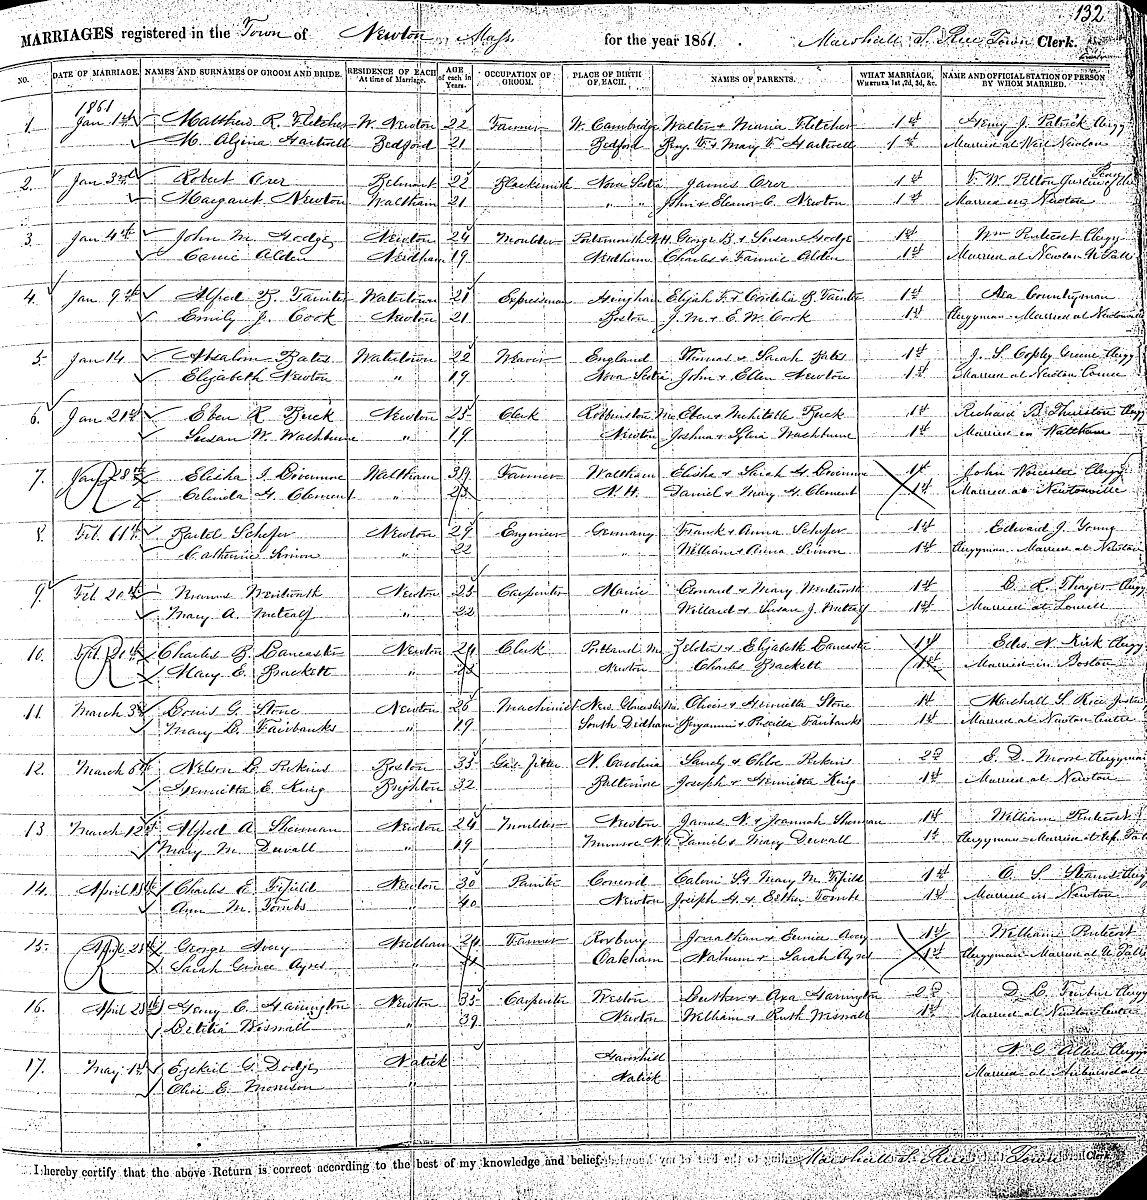 132
MARRIAGES registered in the Town of Newton Mass for the year 1861. Marshall S. Rice Town Clerk.
NO. DATE OF MARRIAGE. NAMES AND SURNAMES OF GROOM AND BRIDE. RESIDENCE OF EACH At time of Marriage. AGE of each in Years. OCCUPATION OF GROOM. PLACE OF BIRTH OF EACH. NAMES OF PARENTS. WHAT MARRIAGE, WHETHER 1st, 2d, 3d, &c. NAME AND OFFICIAL STATION OF PERSON BY WHOM MARRIED.
1861
1. Jan 1st Matthew R. Fletcher W. Newton 22 Farmer W. Cambridge Walter & Maria Fletcher 1st Henry J. Patrick Clergy
M. Algina Hartwell Bedford 21 Bedford Benj. F. & Mary F. Hartwell 1st Married at West Newton
2. Jan 3rd Robert Orer Belmont 22 Blacksmith Nova Scotia James Orer 1st F. W. Pelton Justice of the Peace
Margaret Newton Waltham 21 " " John & Eleanor C. Newton 1st Married in Newton
3. Jan 4th John M. Hodge Newton 24 Moulder Portsmouth N.H. George B. & Susan Hodge 1st Wm Penticost Clergy
Carrie Alden Needham 19 Needham Charles & Fannie Alden 1st Married at Newton U Falls
4. Jan 9th Alfred B. Tainter Watertown 21 Expressman Hingham Elijah F. & Cordelia B Tainter 1st Asa Countryman
Emily J. Cook Newton 21 Boston J. M. & E. W. Cook 1st Clergyman - Married at Newtonville
5. Jan 14 Absalom Bates Watertown 22 Weaver England Thomas & Sarah Bates 1st J. S. Copley Greene Clergy
Elizabeth Newton " 19 Nova Scotia John & Ellen Newton 1st Married at Newton Corner
6. Jan 21st Eben R. Buck Newton 25 Clerk Robbinston Me Eben & Mehitable Buck 1st Richard B. Thurston Clergy
Susan W. Washburne " 19 Newton Joshua & Sylvia Washburne 1st Married in Waltham
7. Jan 28th Elisha I. Livermore Waltham 39 Farmer Waltham Elisha & Sarah H. Livermore 1st John Worcester Clergy
Celenda H. Clement " 23 N. H. Daniel & Mary H. Clement 1st Married at Newtonville
8. Feb. 11th Bartel Schofer Newton 29 Engineer Germany Frank & Anna Schofer 1st Edward J. Young
Catherine Simon " 22 " William & Anna Simon 1st Clergyman. Married at Newton
9. Feb 20th Wentworth Newton 25 Carpenter Maine Lenard & Mary Wentworth 1st L. R. Thayer Clergy
Mary A. Metcalf " 22 " Willard & Susan J. Metcalf 1st Married at Lowell
10. Feb. 21st Charles B. Lancaster Newton 24 Clerk Portland Me Zelotes & Elizabeth Lancaster 1st Edw. N. Kirk Clergy
Mary E. Brackett " 23 Newton Charles Brackett 1st Married in Boston
11. March 3d Louis G. Stone Newton 26 Machinist New Gloucester Me. Oliver & Henrietta Stone 1st Marshall S. Rice Justice
Mary L. Fairbanks " 19 South Dedham Benjamin & Priscilla Fairbanks 1st Married at Newton Centre
12. March 6th Nelson L. Perkins Boston 35 Gas fitter N. Carolina Sandy & Chloe Perkins 2d E. D. Moore Clergyman
Henrietta E. King Brighton 32 Baltimore Joseph & Henrietta King 1st Married at Newton
13 March 12th Alfred A Sherman Newton 24 Moulder Newton James N. & Joannah Sherman 1st William Penticost
Mary M. Duvall " 19 Munroe N.Y. Daniel & Mary Duvall 1st Clergyman - Married at Up. Falls
14. April 15th Charles E. Fifield Newton 30 Painter Concord Calvin S. & Mary M. Fifield 1st O. S. Stearns Clergy
Ann M. Tombs " 40 Newton Joseph H. & Esther Tombs 1st Married in Newton
15. April 25th George Avery Needham 24 Farmer Roxbury Jonathan & Eunice Avery 1st William Penticost
Sarah Grace Ayres " 21 Oakham Nahum & Sarah Ayres 1st Clergyman - Married at U. Falls
16. April 25th Henry C. Harrington Newton 35 Carpenter Weston Luther & Axa Harrington 2d D. L. Furber Clergy
Letitia Wiswall " 39 Newton William & Ruth Wiswall 1st Married at Newton Centre
17. May 1st Ezekiel G. Dodge Natick Haverhill N. G. Allen Clergy
Olive E. Morrison " Natick Married at Auburndale
I hereby certify that the above Return is correct according to the best of my knowledge and belief. Marshall S. Rice Town Clerk